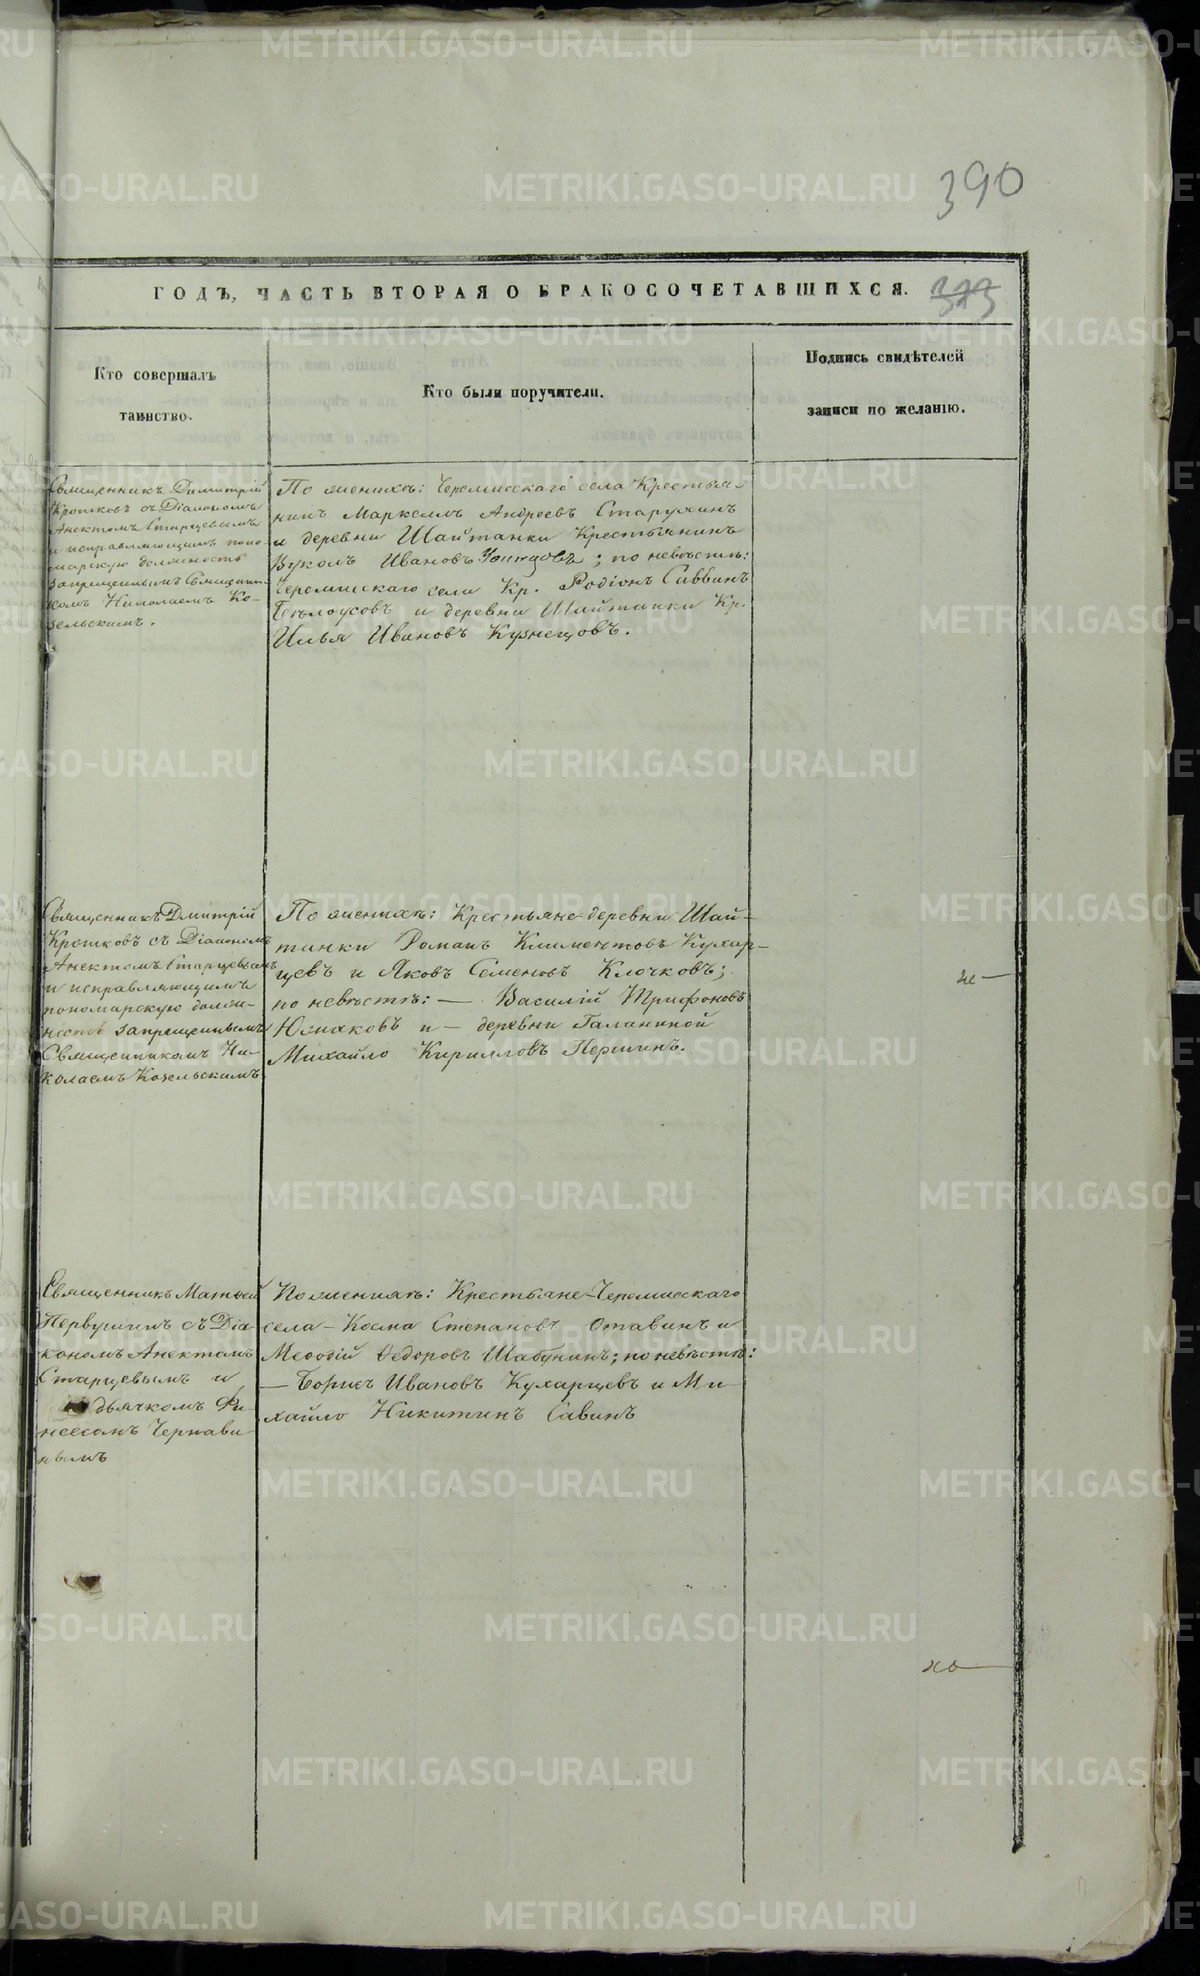 390
ГОДЪ, ЧАСТЬ ВТОРАЯ О БРАКОСОЧЕТАВШИХСЯ.
373
Кто совершалъ
таинство.
Кто были поручители.
Подпись свидѣтелей
записи по желанію.
Священникъ Димитрій
Кротковъ съ Діакономъ
Анектомъ Старцевымъ
и исправляющимъ поно-
марскую должность
запрещеннымъ Священни-
комъ Николаемъ Ко-
зельскимъ.
По женихѣ: Черемисскаго села Крестья-
нинъ Маркеллъ Андреевъ Старухинъ
и деревни Шайтанки Крестьянинъ
Вуколъ Ивановъ ; по невѣстѣ:
Черемискаго села Кр. Родіонъ Саввинъ
Бѣлоусовъ и деревни Шайтанки Кр.
Илья Ивановъ Кузнецовъ.
Священникъ Дмитрій
Кротковъ съ Діакономъ
Анектомъ Старцевымъ
и исправляющимъ
пономарскую долж-
ность запрещеннымъ
Священникомъ Ни-
колаемъ Козельскимъ
По женихѣ: Крестьяне деревни Шай-
танки Романъ Климентовъ Кухар-
цевъ и Яковъ Семеновъ Клочковъ;
по невѣстѣ: — Василій Трифоновъ
Юшаковъ и — деревни Галаниной
Михайло Кирилловъ Першинъ.
Священникъ Матѳей
Первушинъ съ Діа-
кономъ Анектомъ
Старцевымъ и
дьячкомъ Фи-
несомъ Чернави-
нымъ
По женихѣ: Крестьяне Черемисскаго
села — Косма Степановъ Отавинъ и
Меѳодій Ѳедоровъ Шабунинъ; по невѣстѣ:
— Борисъ Ивановъ Кухарцевъ и Ми-
хайло Никитинъ Савинъ
METRIKI.GASO-URAL.RU